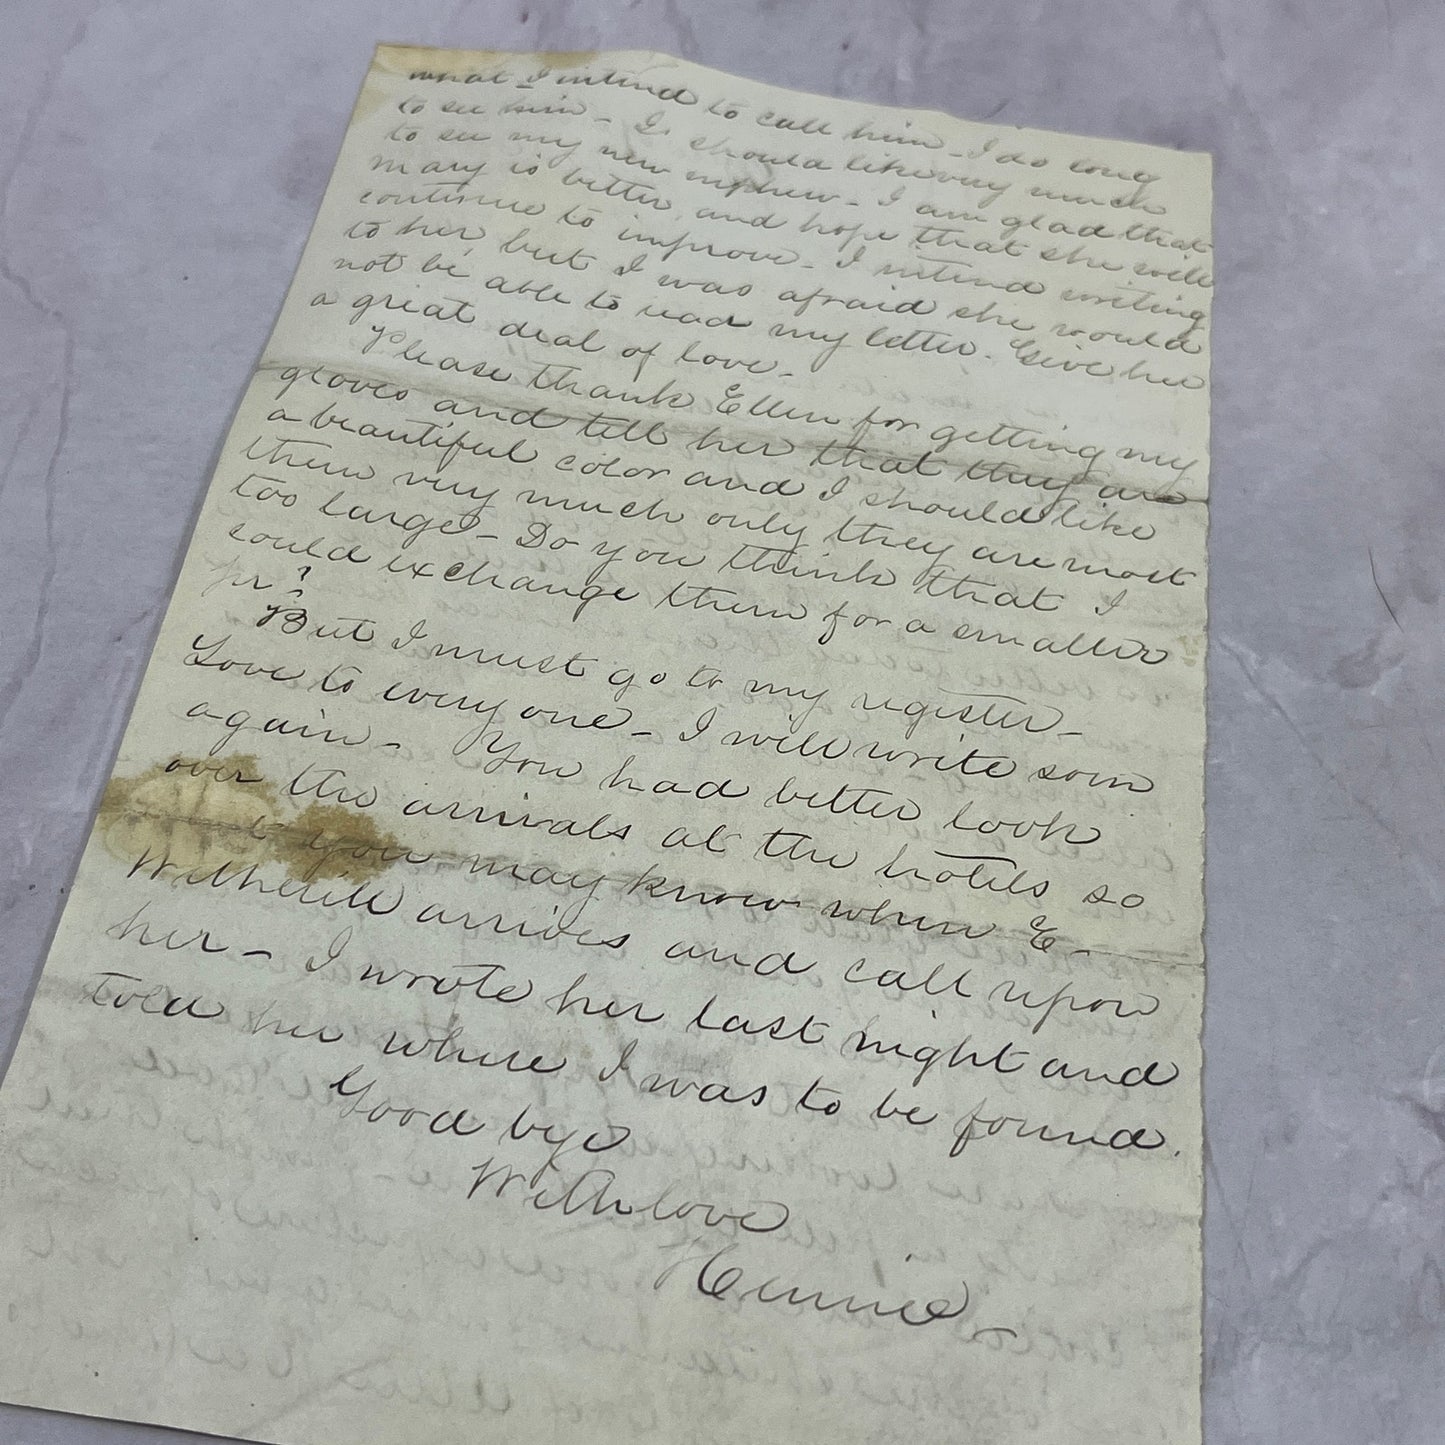 what I intend to call him - I do long
to see him - I should like very much
to see my new nephew - I am glad that
Mary is better and hope that she will
continue to improve - I intend writing
to her, but I was afraid she would
not be able to read my letter - Give her
a great deal of love -
Please thank Ellen for getting my
gloves and tell her that they are
a beautiful color and I should like
them very much only they are most
too large - Do you think that I
could exchange them for a smaller
pr?
But I must go to my register -
Love to every one - I will write soon
again - You had better look
over the arrivals at the hotels so
that you may know when E -
Witherill arrives and call upon
her - I wrote her last night and
told her where I was to be found.
Good bye
With love
Hennie -